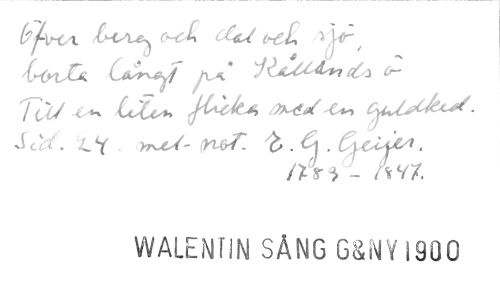 Öfver berg och dal och sjö,
borta långt på Kållands ö
Till en liten flicka med en guldked.
Sid. 24. mel-not. E. G. Geijer.
1783-1847.
WALENTIN SÅNG G&NY 1900